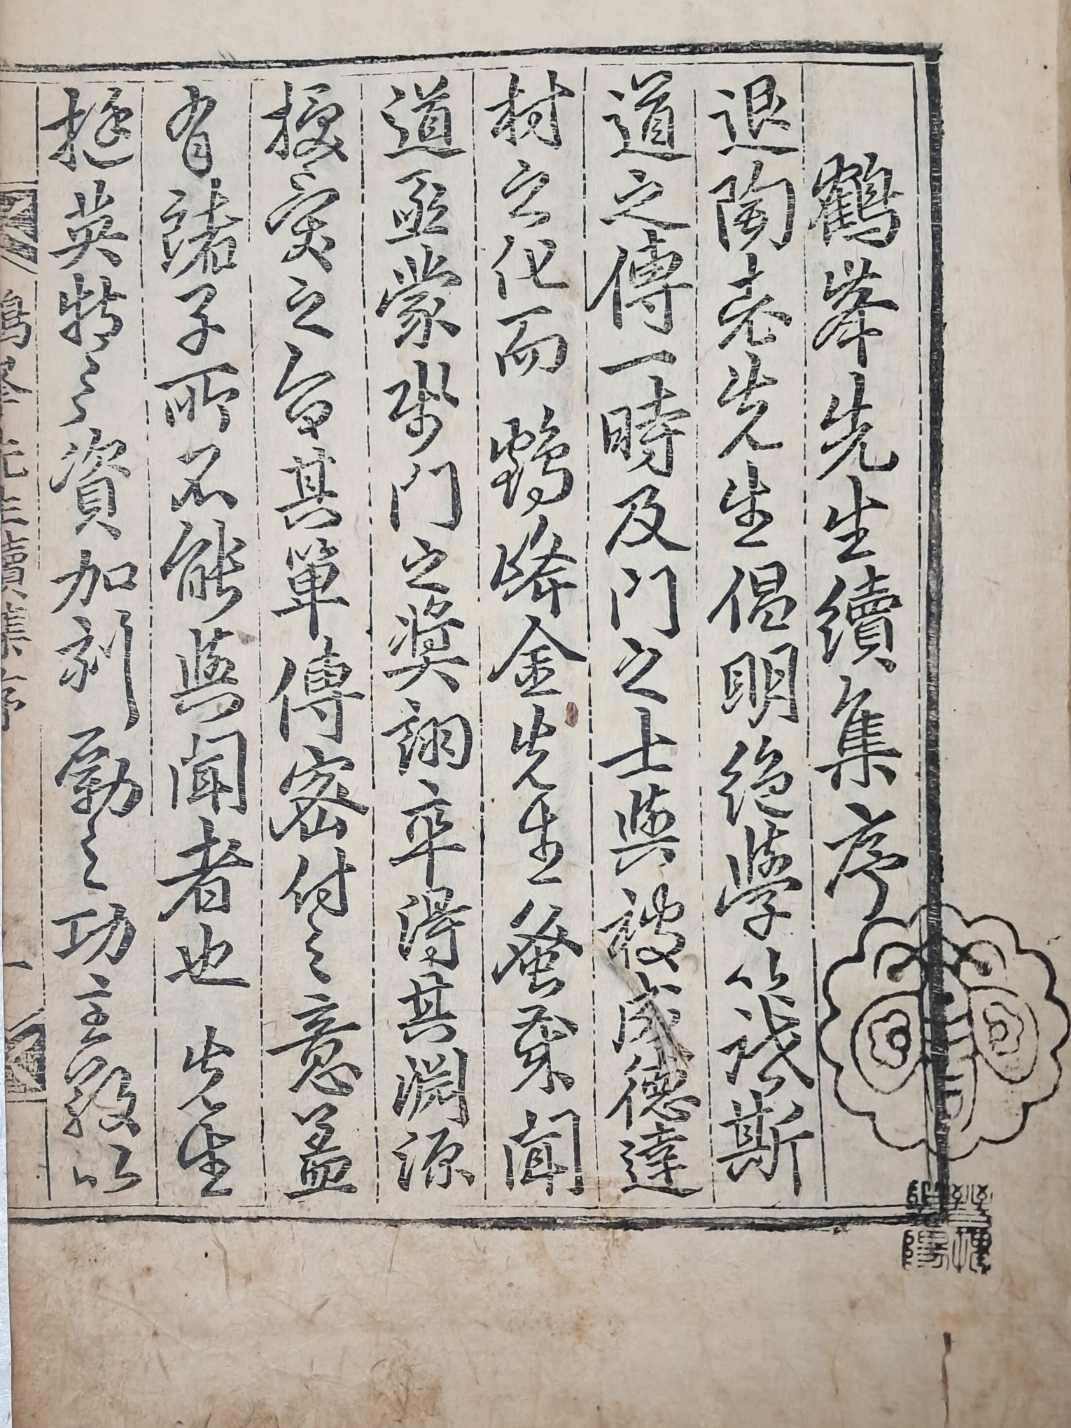 鶴峯先生續集序
退陶老先生倡明絶學以詔斯
道之傳一時及門之士與被成德達
材之化而 鶴峰金先生蚤歲聞
道亟蒙師門之奬詡卒得其淵源
授受之旨其單傳密付之意盖
有諸子所不能與聞者也 先生
挺英特之資加刻勵之功主敬以
鶴峯先生續集序 一